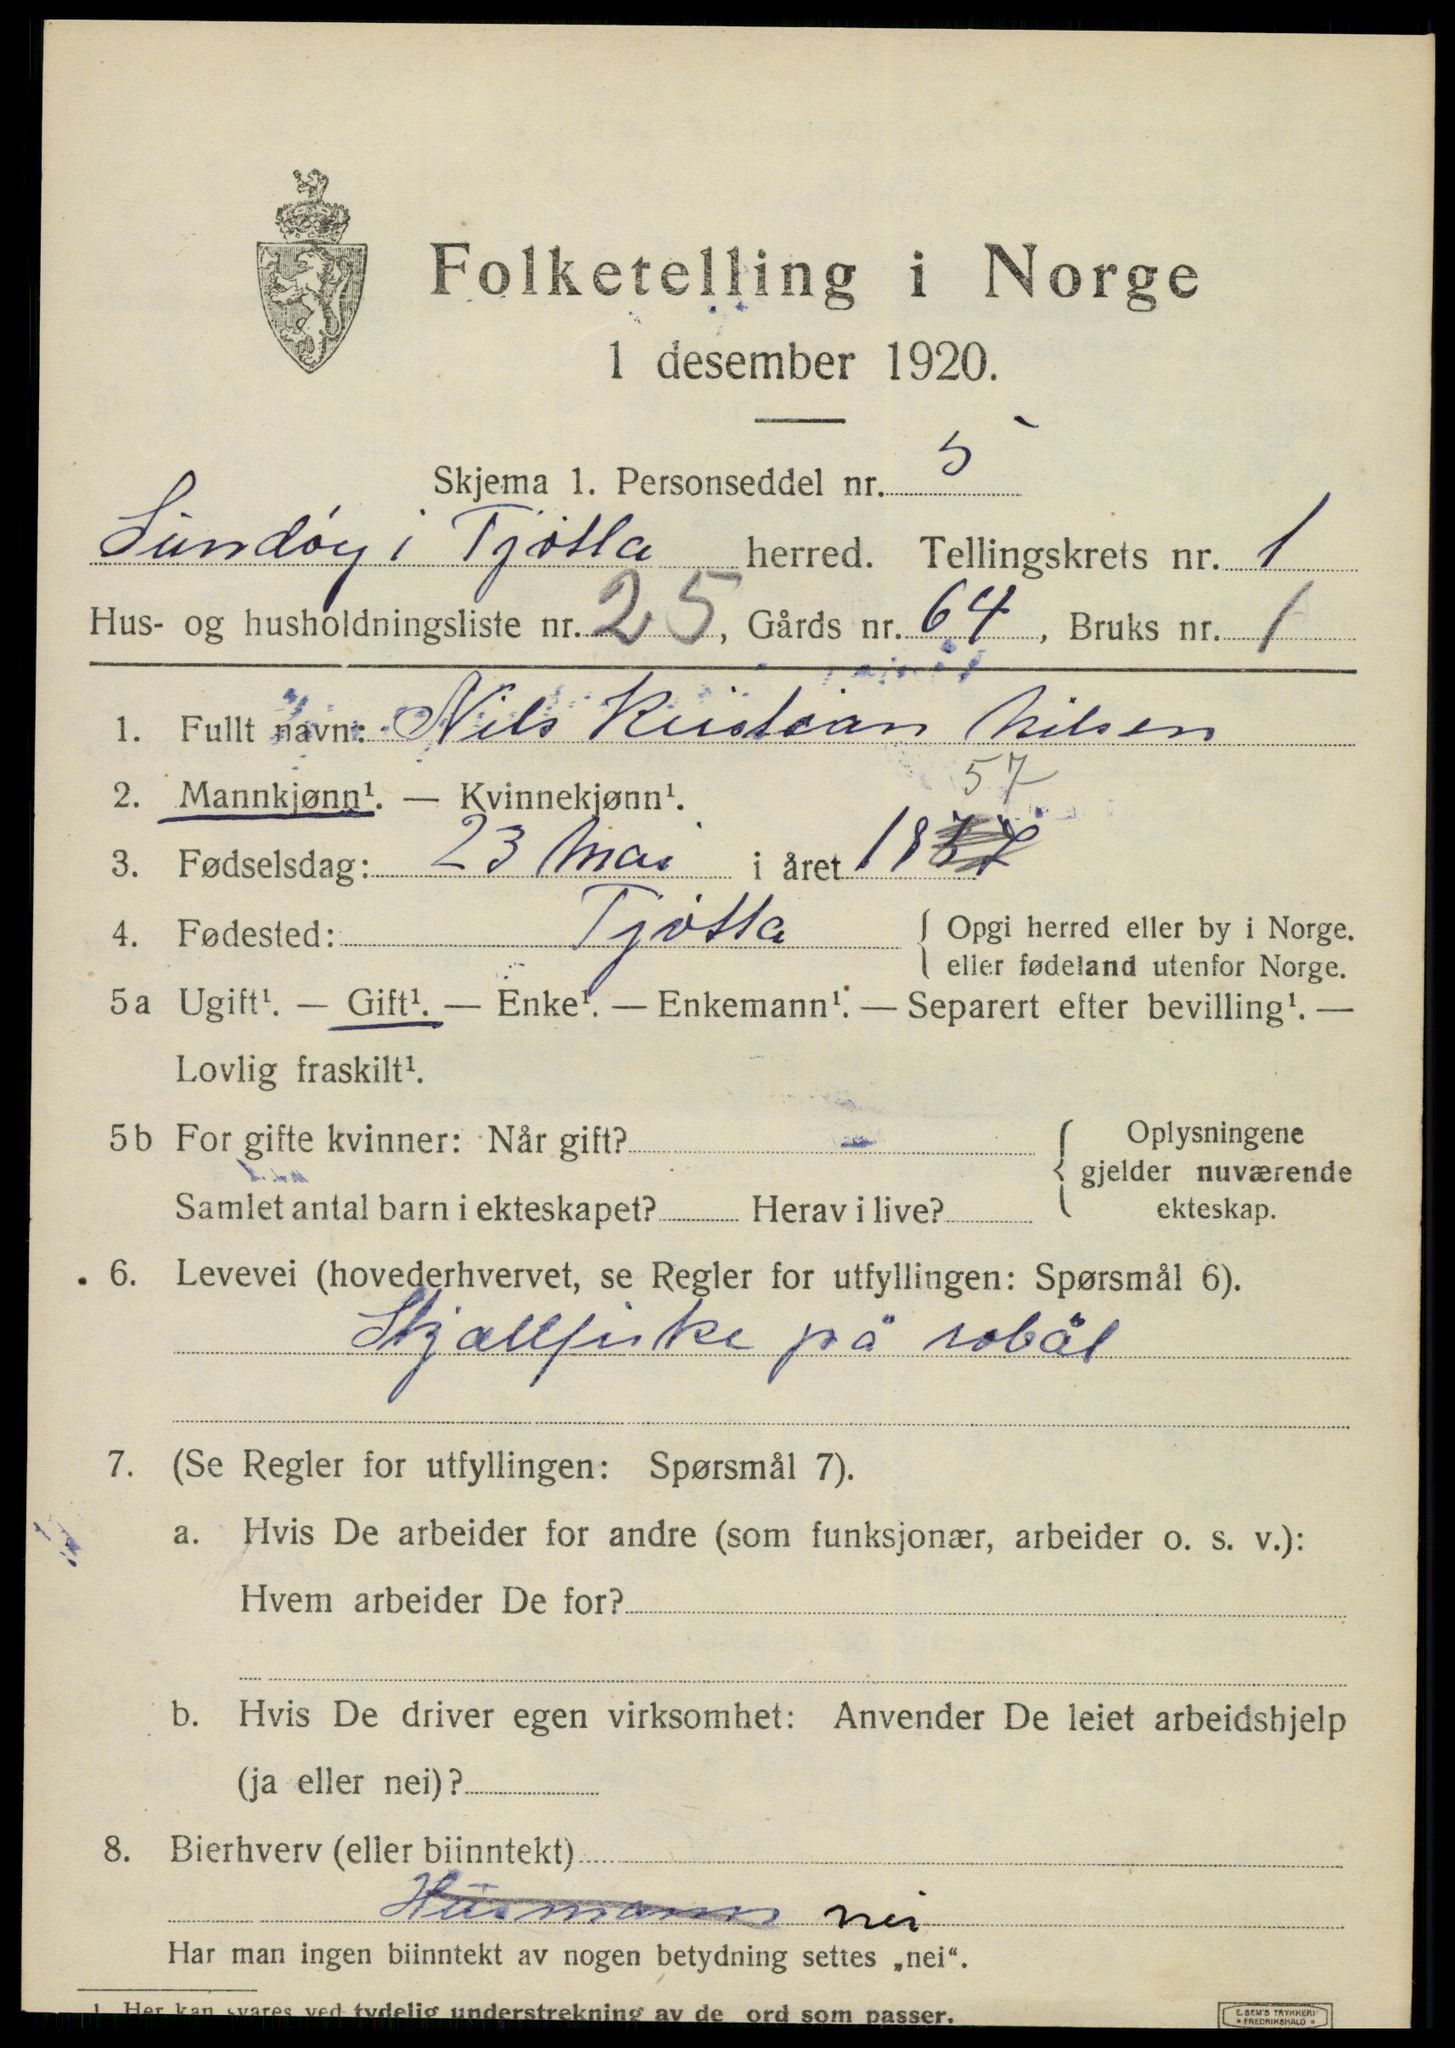 Folketelling i Norge
1 desember 1920.
Skjema 1. Personseddel nr. 5
Sundöy i Tjötta herred. Tellingskrets nr. 1
Hus- og husholdningsliste nr. 25, Gårds nr. 64, Bruks nr. 1
1. Fullt navn: Nils Kristian Nilsen
2. Mannkjønn¹. — Kvinnekjønn¹.
57
3. Fødselsdag: 23 Mai i året 18
4. Fødested: Tjötta { Opgi herred eller by i Norge.
eller fødeland utenfor Norge.
5a Ugift¹. — Gift¹. — Enke¹. — Enkemann¹. — Separert efter bevilling¹. —
Lovlig fraskilt¹.
5b For gifte kvinner: Når gift? { Oplysningene
gjelder nuværende
Samlet antal barn i ekteskapet? Herav i live? ekteskap.
6. Levevei (hovederhvervet, se Regler for utfyllingen: Spørsmål 6).
Skjællfiske på robåt
7. (Se Regler for utfyllingen: Spørsmål 7).
a. Hvis De arbeider for andre (som funksjonær, arbeider o. s. v.):
Hvem arbeider De for?
b. Hvis De driver egen virksomhet: Anvender De leiet arbeidshjelp
(ja eller nei)?
8. Bierhverv (eller biinntekt)
Husmann nei
Har man ingen biinntekt av nogen betydning settes „nei“.
1. Her kan svares ved tydelig understrekning av de ord som passer.
E. SEM'S TRYKKERI
FREDRIKSHALD